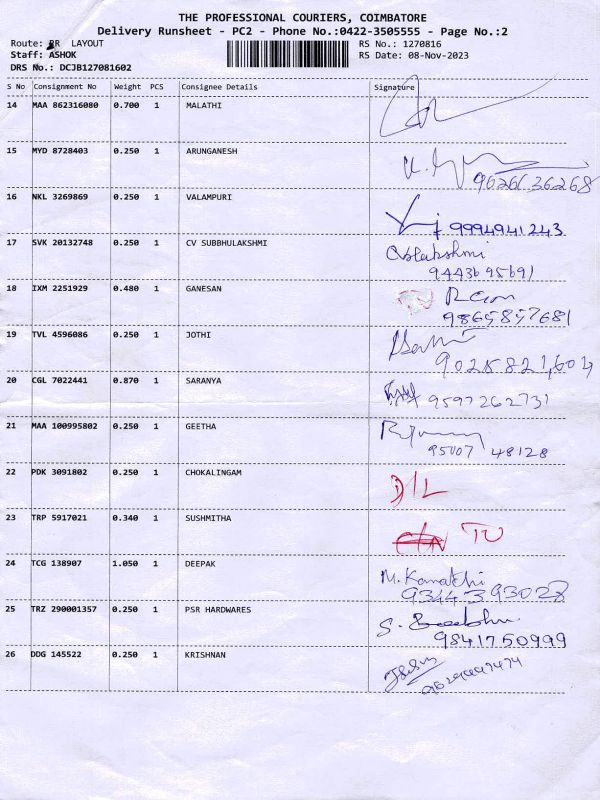 THE PROFESSIONAL COURIERS, COIMBATORE
Delivery Runsheet - PC2 - Phone No.:0422-3505555 - Page No.:2
Route: RR LAYOUT RS No.: 1270816
Staff: ASHOK RS Date: 08-Nov-2023
DRS No.: DCJB127081602
S No Consignment No Weight PCS Consignee Details Signature
14 MAA 862316080 0.700 1 MALATHI
15 MYD 8728403 0.250 1 ARUNGANESH
9626636268
16 NKL 3269869 0.250 1 VALAMPURI
9994941243
17 SVK 20132748 0.250 1 CV SUBBHULAKSHMI
9443695691
18 IXM 2251929 0.480 1 GANESAN
9865857681
19 TVL 4596086 0.250 1 JOTHI
20 CGL 7022441 0.870 1 SARANYA 9597262731
21 MAA 100995802 0.250 1 GEETHA
95007 48128
22 PDK 3091802 0.250 1 CHOKALINGAM D/L
23 TRP 5917021 0.340 1 SUSHMITHA
24 TCG 138907 1.050 1 DEEPAK M. Kamatchi
9344393028
25 TRZ 290001357 0.250 1 PSR HARDWARES S.
9841750999
26 DDG 145522 0.250 1 KRISHNAN